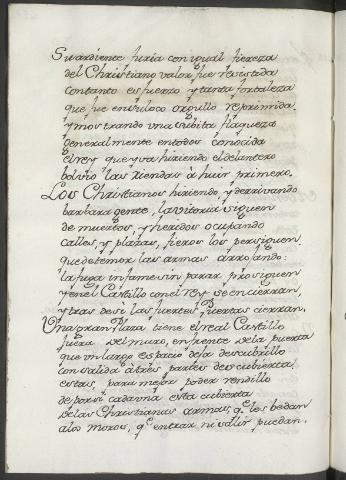 Su ardiente furia con ygual fiereza
del Christiano valor, fue resistida
con tanto esfuerzo, y tanta fortaleza
que fue en su loco orgullo reprimida.
y mostrando vna subita flaqueza
generalmente en todos conocida
el rey que yva hiriendo el delantero
bolvio las riendas à huir primero.
Los Christianos hiriendo, y derrivando
barbara gente, la vitoria siguen
de muertos, y heridos ocupando
calles, y plaças, fieros los persiguen.
que de temor las armas arrojando:
la fuga infame sin parar prosiguen
y en el Castillo con el rey se encierran,
y tras de si las fuertes Puertas cierran.
Vna gran Plaza tiene el real Castillo
fuera del muro, en frente de la puerta
que vn largo espacio deja descubrillo
con salida à tres partes descubierta:
estas, para mejor poder rendillo
de por si cada vna esta cubierta
de las Christianas armas, q.e los vedan
a los moros, q.e entrar ni salir puedan.